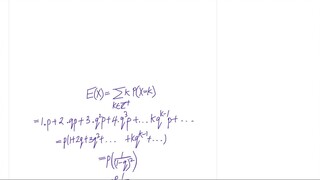 E(X) = ∑ k P(X=k)
k∈ℤ⁺
= 1.p + 2.qp + 3.q²p + 4.q³p + ... kq^{k-1}p + ...
= p(1+2q+3q²+... +kq^{k-1}+...)
= p(1/(1-q)²)